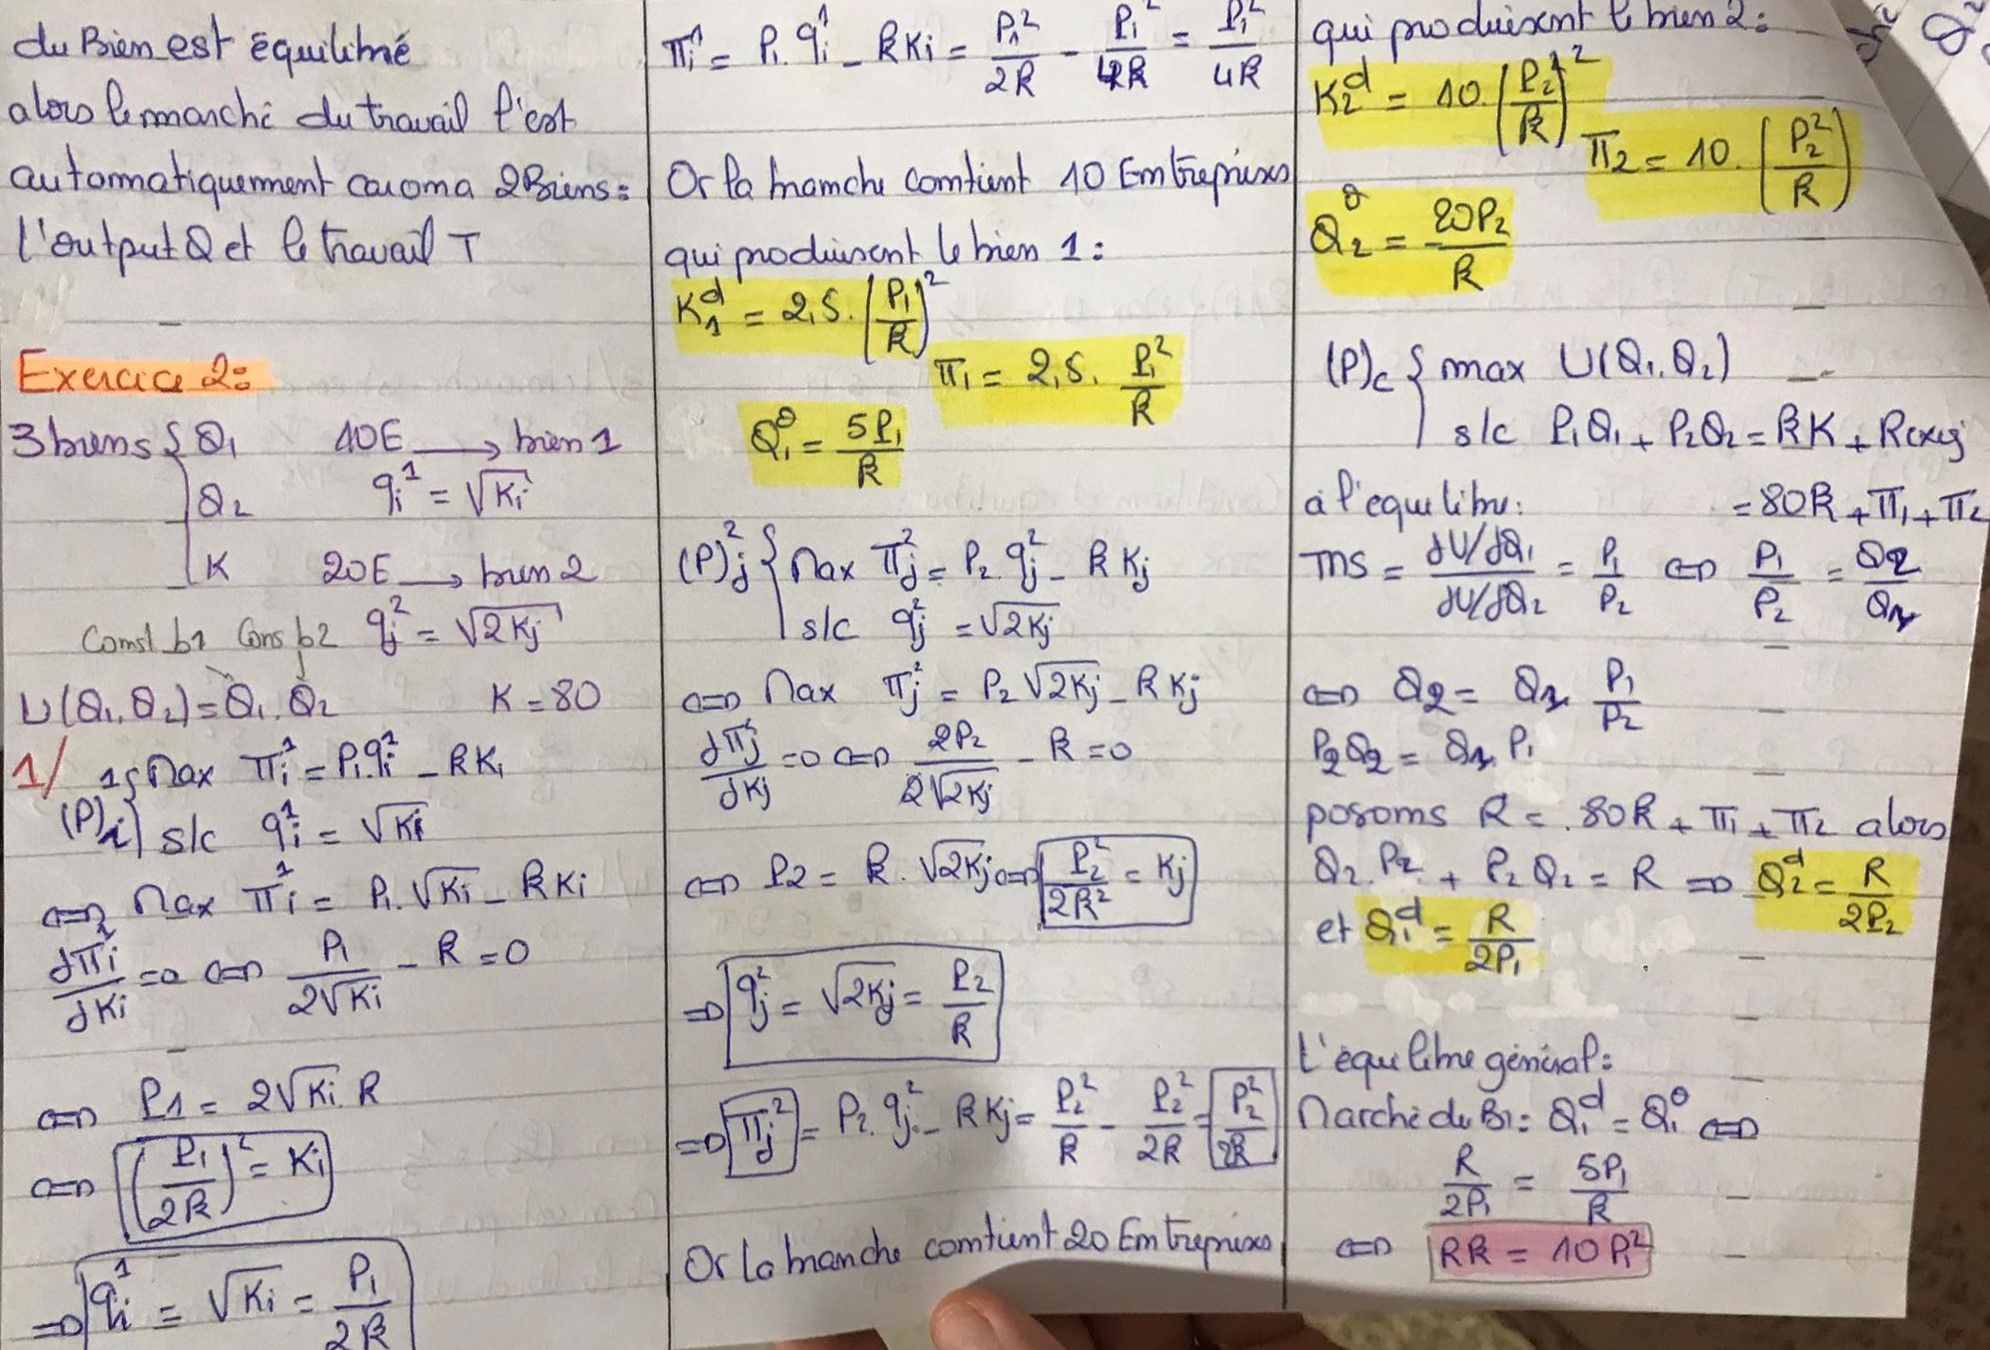 du Bien est équilibré
alors le marché du travail l'est
automatiquement car on a 2 Biens:
l'output Q et le travail T
Exercice 2:
3 biens { Q₁ 10E → bien 1
Q₂ qᵢ¹ = √Kᵢ
K 20E → bien 2
Const b1 Cons b2 qⱼ² = √2Kⱼ
U(Q₁,Q₂) = Q₁.Q₂ K = 80
1/ (P)ᵢ¹ { Max πᵢ¹ = P₁.qᵢ¹ - RKᵢ
s/c qᵢ¹ = √Kᵢ
⇔ Max πᵢ¹ = P₁.√Kᵢ - RKᵢ
∂πᵢ¹/∂Kᵢ = 0 ⇔ P₁/2√Kᵢ - R = 0
⇔ P1 = 2√Kᵢ.R
⇔ (P₁/2R)² = Kᵢ
⇒ qᵢ¹ = √Kᵢ = P₁/2R
πᵢ¹ = P₁.qᵢ¹ - RKᵢ = P₁²/2R - P₁²/4R = P₁²/4R
Or la branche contient 10 Entreprises
qui produisent le bien 1:
K₁ᵈ = 2,5.(P₁/R)²
π₁ = 2,5. P₁²/R
Q₁⁰ = 5P₁/R
(P)ⱼ² { Max πⱼ² = P₂.qⱼ² - RKⱼ
s/c qⱼ² = √2Kⱼ
⇔ Max πⱼ² = P₂√2Kⱼ - RKⱼ
∂πⱼ²/∂Kⱼ = 0 ⇔ 2P₂/2√2Kⱼ - R = 0
⇔ P2 = R.√2Kⱼ ⇔ P₂²/2R² = Kⱼ
⇒ qⱼ² = √2Kⱼ = P₂/R
⇒ πⱼ² = P₂.qⱼ² - RKⱼ = P₂²/R - P₂²/2R = P₂²/2R
Or la branche contient 20 Entreprises
qui produisent le bien 2:
K₂ᵈ = 10.(P₂/R)²
π₂ = 10.(P₂²/R)
Q₂⁰ = 20P₂/R
(P)c { max U(Q₁,Q₂)
s/c P₁Q₁ + P₂Q₂ = RK + Rexg
à l'équilibre: = 80R + π₁ + π₂
TMS = ∂U/∂Q₁ / ∂U/∂Q₂ = P₁/P₂ ⇔ P₁/P₂ = Q₂/Q₁
⇔ Q₂ = Q₁ P₁/P₂
P₂Q₂ = Q₁.P₁
posons R = 80R + π₁ + π₂ alors
Q₂.P₂ + P₂Q₂ = R ⇒ Q₂ᵈ = R/2P₂
et Q₁ᵈ = R/2P₁
L'équilibre général:
Marché du B1: Q₁ᵈ = Q₁⁰ ⇔
R/2P₁ = 5P₁/R
⇔ RR = 10P₁²